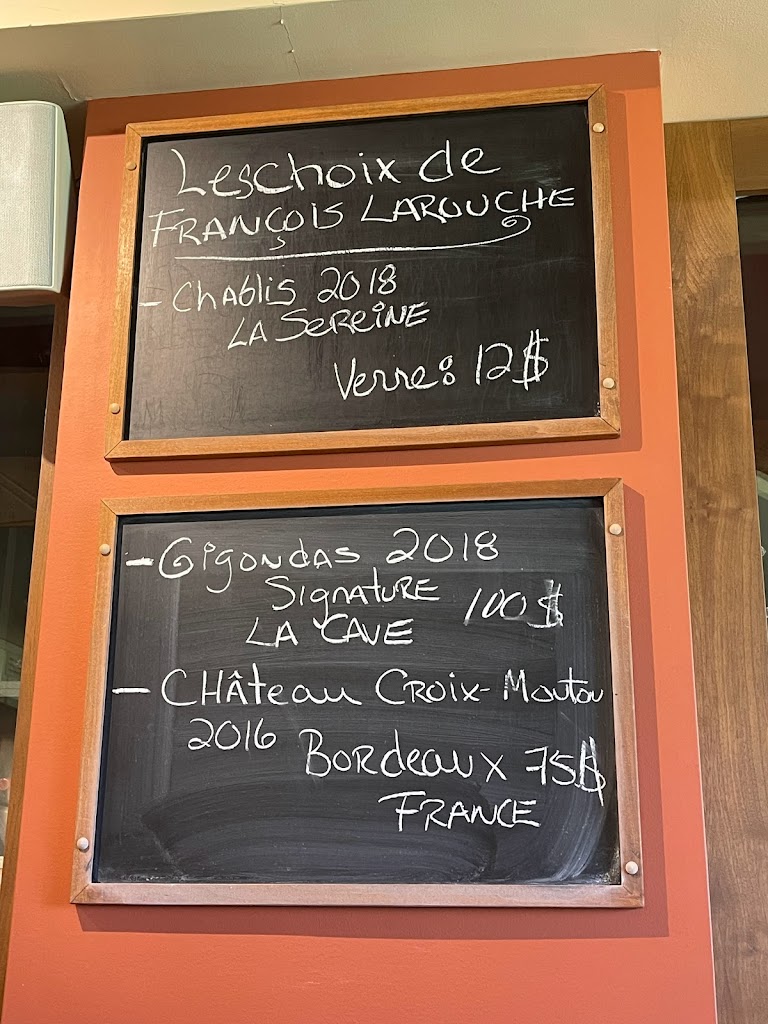 Les choix de
FRANÇOIS LAROUCHE
- Chablis 2018
LA SEREINE
Verre: 12$
- Gigondas 2018
Signature
100$
LA CAVE
- CHâteau CROIX-Mouton
2016
Bordeaux 75$
FRANCE